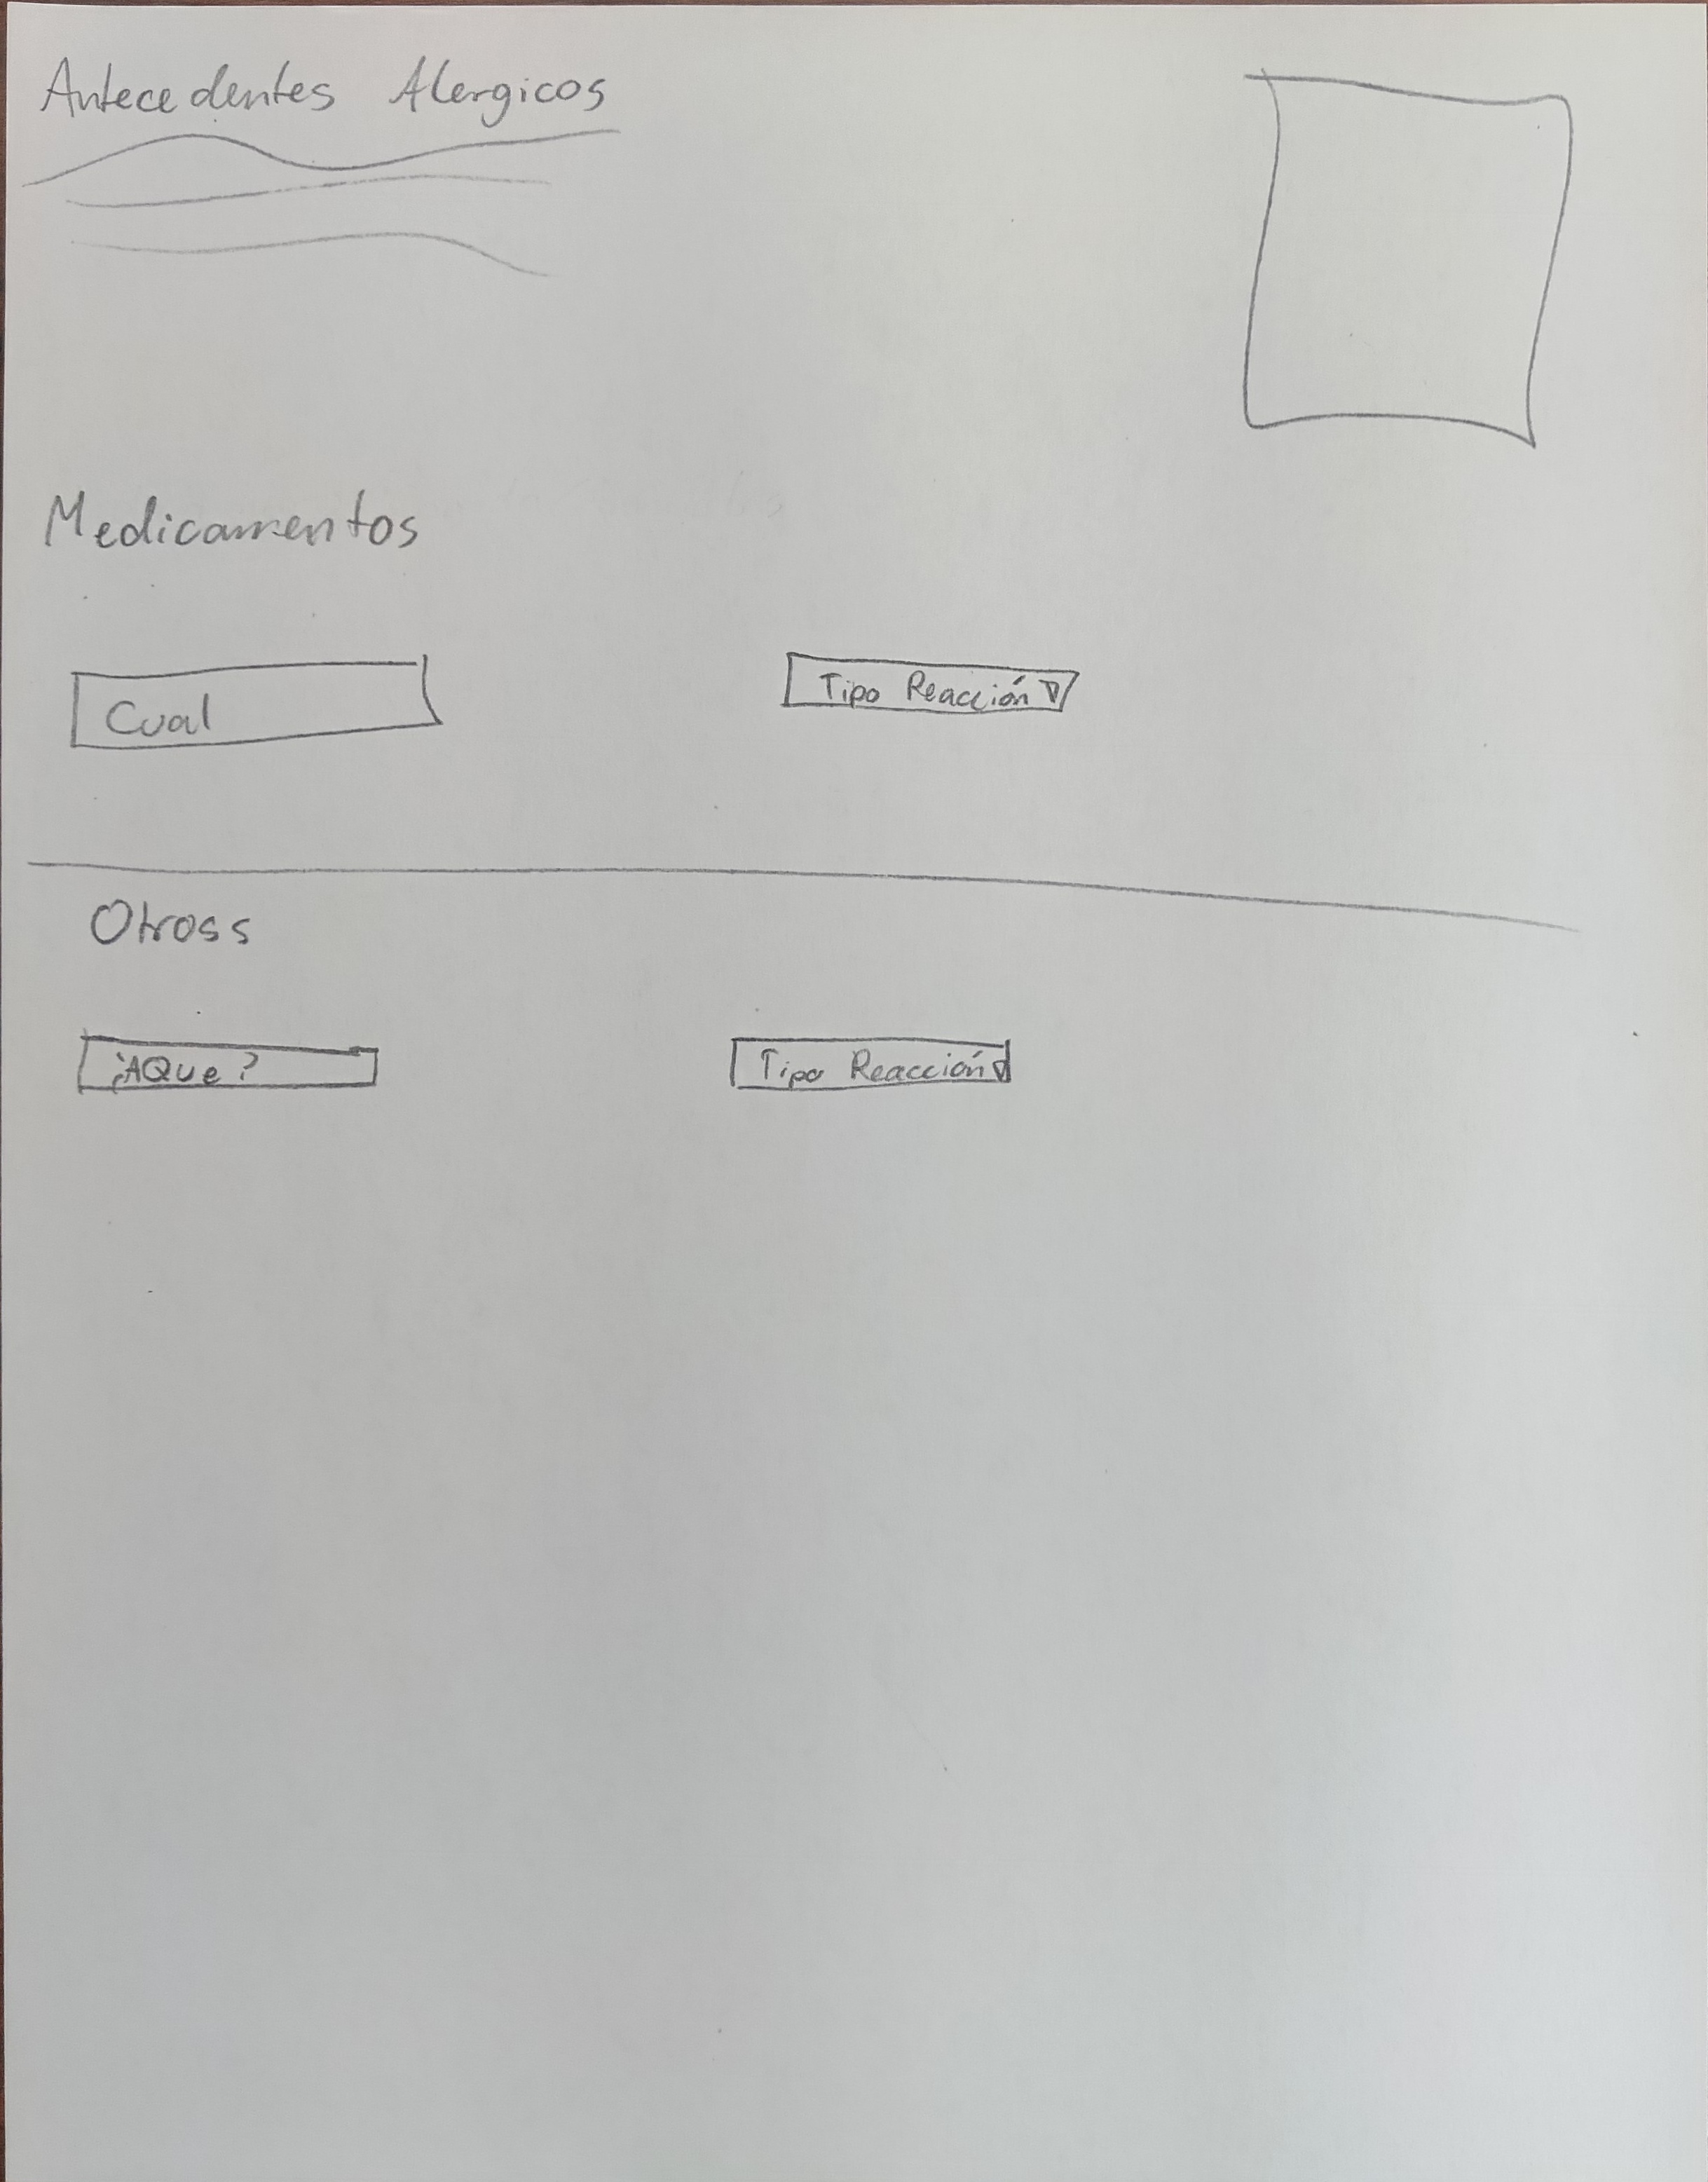 Antecedentes Alergicos
Medicamentos
Cual
Tipo Reacción
Otross
¿AQue?
Tipo Reacción